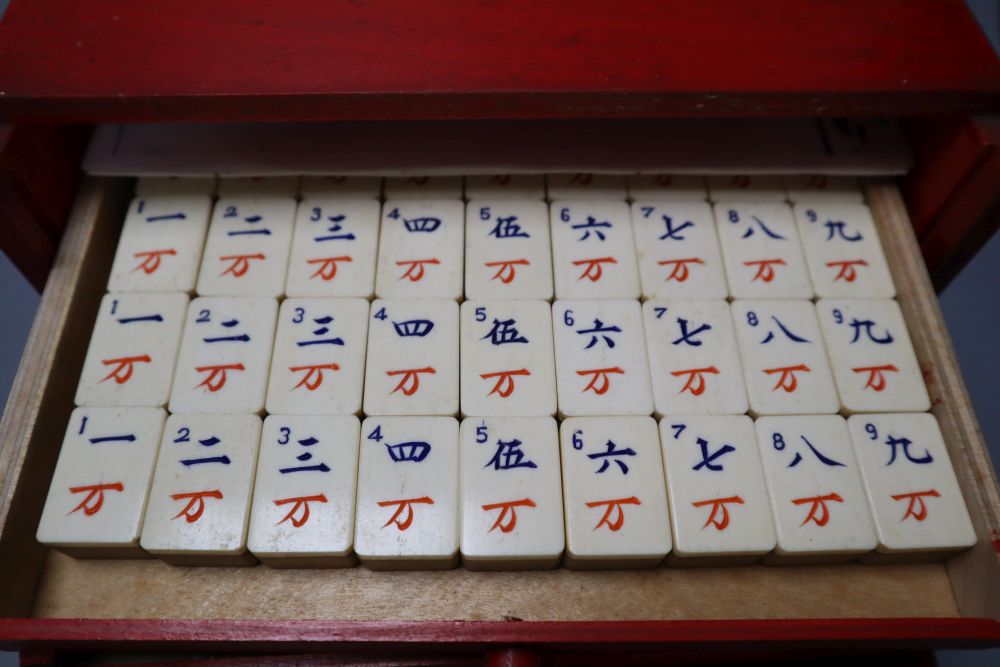 1 一 2 二 3 三 4 四 5 伍 6 六 7 七 8 八 9 九
万 万 万 万 万 万 万 万 万
1 一 2 二 3 三 4 四 5 伍 6 六 7 七 8 八 9 九
万 万 万 万 万 万 万 万 万
1 一 2 二 3 三 4 四 5 伍 6 六 7 七 8 八 9 九
万 万 万 万 万 万 万 万 万